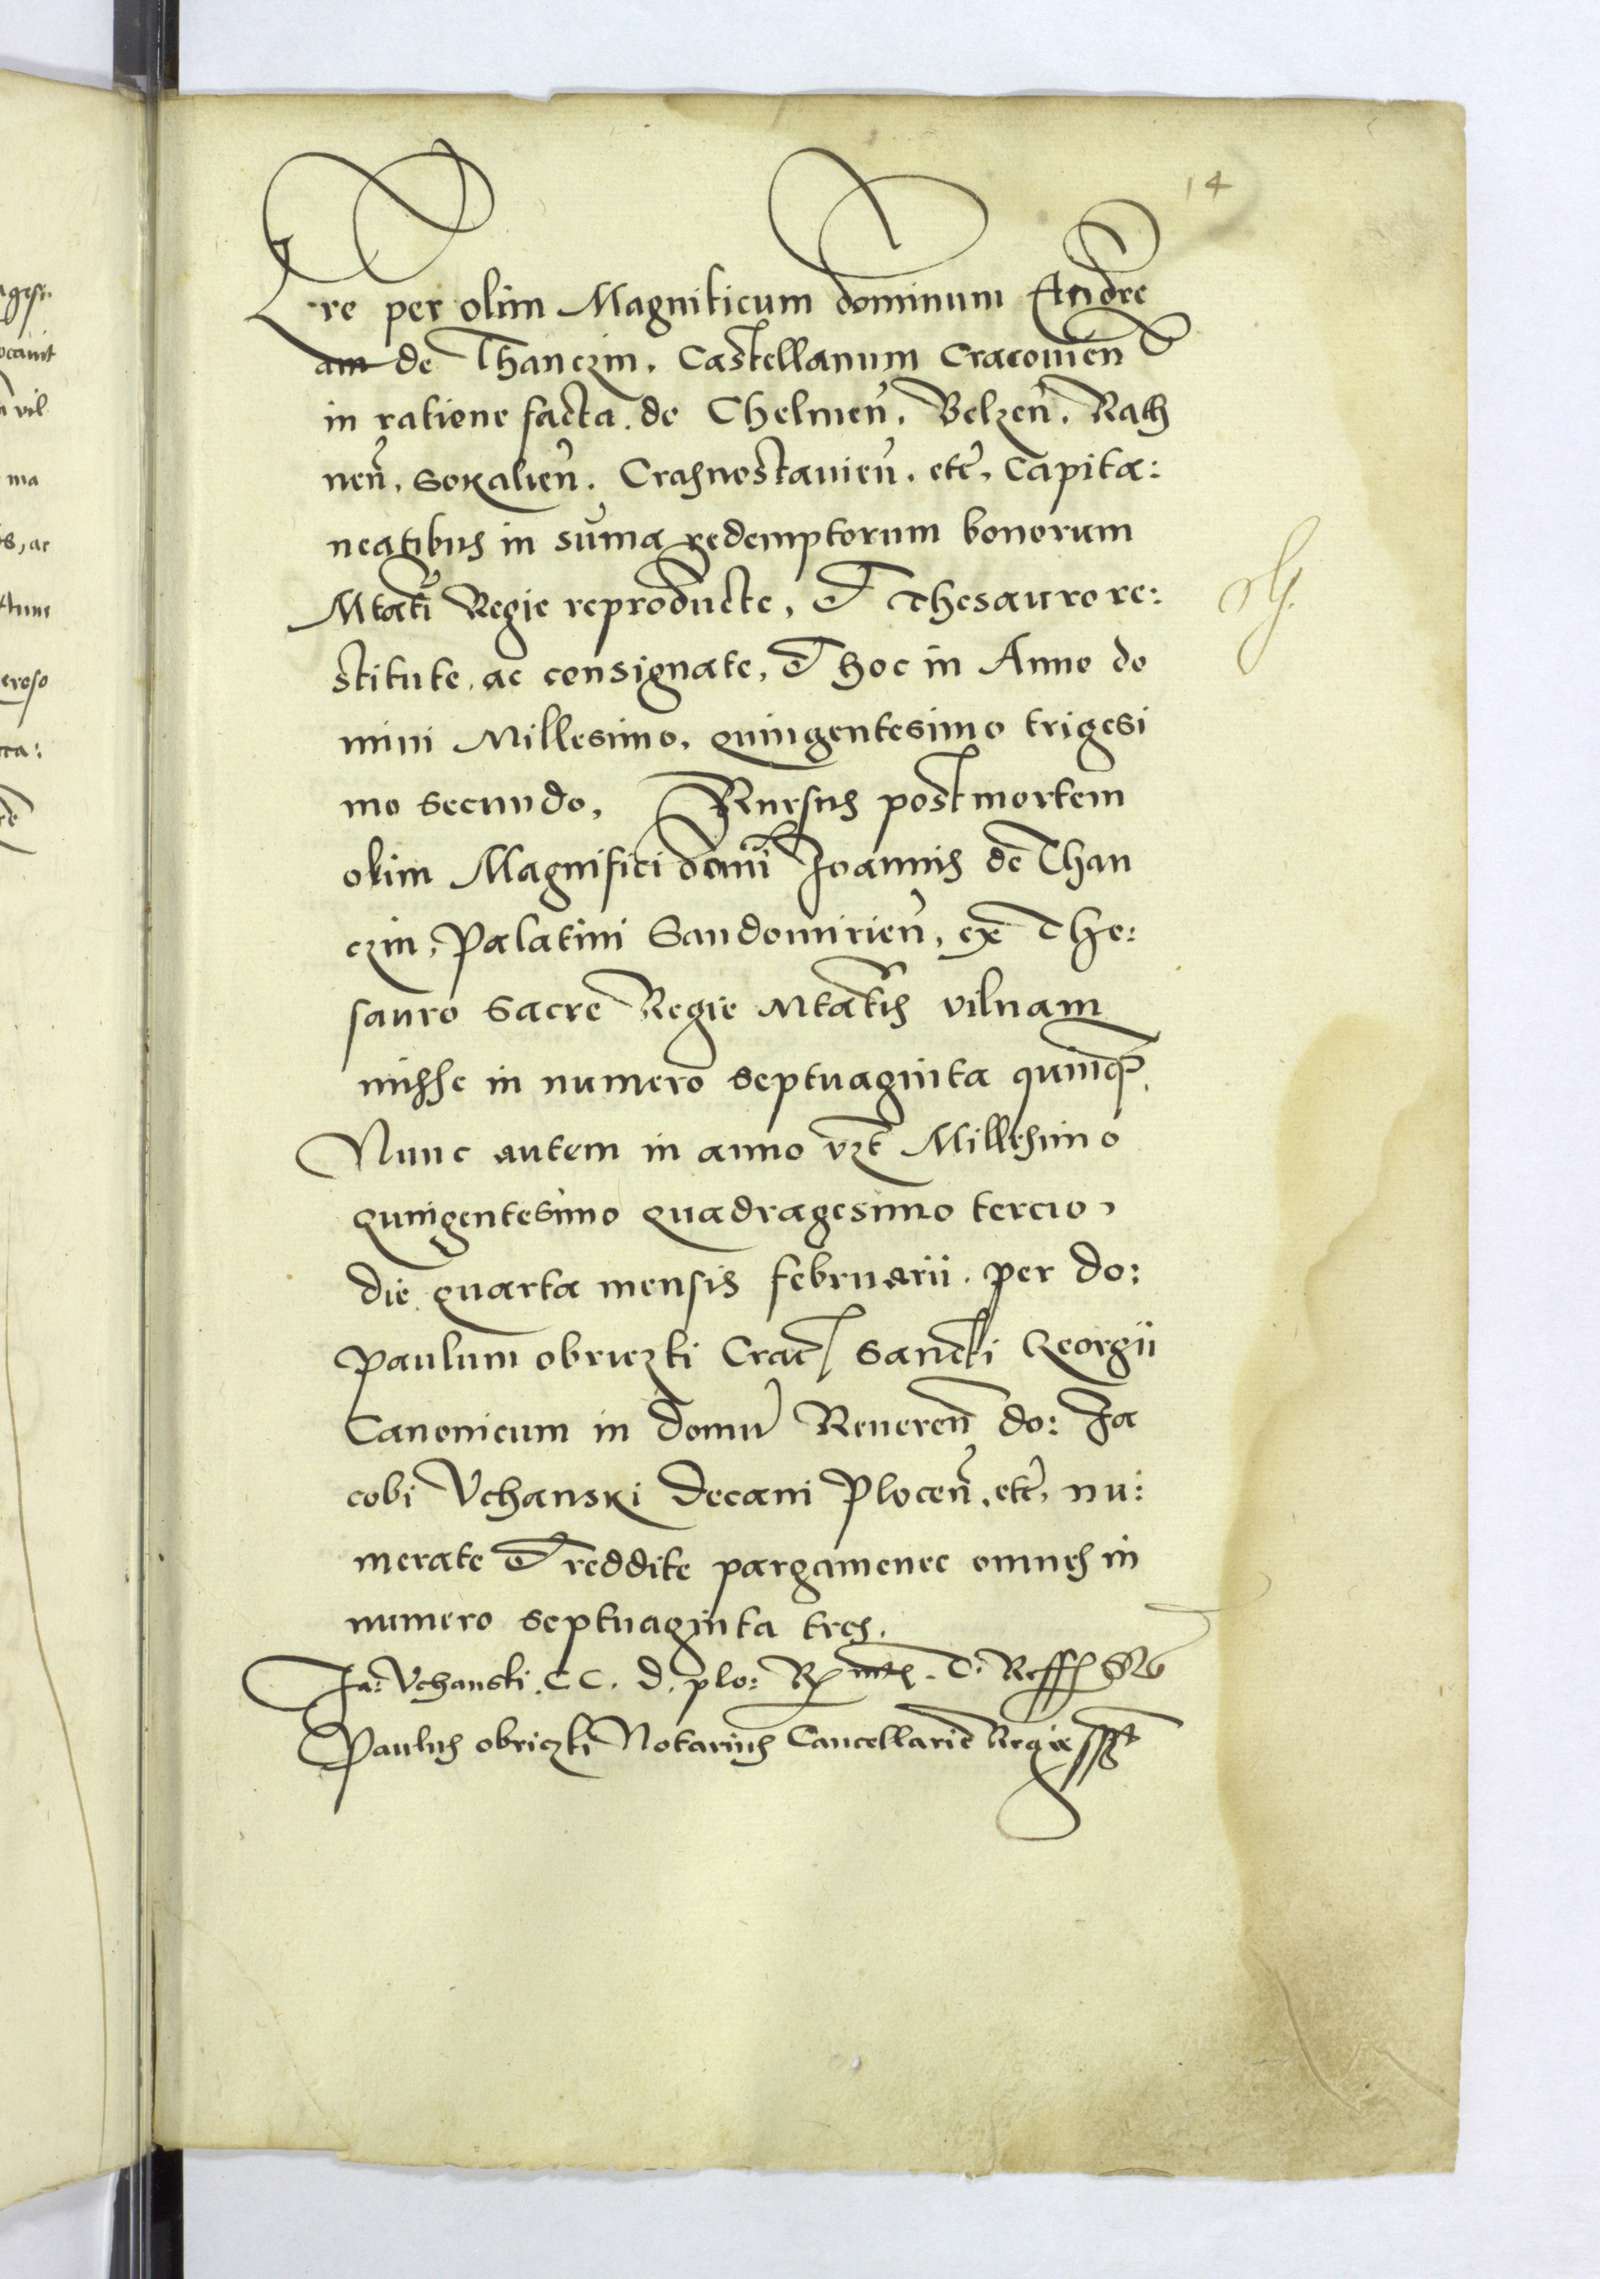 14
Lre per olim Magnificum dominum Andre
am de Thanczin. Castellanum Cracovien
in ratione facta. de Chelmen. Belzen. Rath
nen. Sokalien. Crasnostavien. etc. Capita:
neatibus in suma redemptorum bonorum
Mtati Regie reproducte, et Thesauro re:
stitute, ac consignate, et hoc in Anno do
mini Millesimo. quingentesimo trigesi
mo secundo. Rursus post mortem
olim Magnifici domi Joannis de Than
czin, Palatini Sandomirien, ex The:
sauro Sacre Regie Mtatis vilnam
misse in numero septuaginta quinq.
Nunc autem in anno vzt Millesimo
quingentesimo quadragesimo tercio,
die quarta mensis februarii. per do:
Paulum obriczki Crac Sancti Georgii
Canonicum in domu Reveren do: Ja
cobi Vchanski Decani Plocen. etc. nu:
merate et reddite pargamenee omnes in
numero septuaginta tres.
Ja: Vchanski. C C. D. plo: R
Paulus obriczki Notarius Cancellarie Regie sst